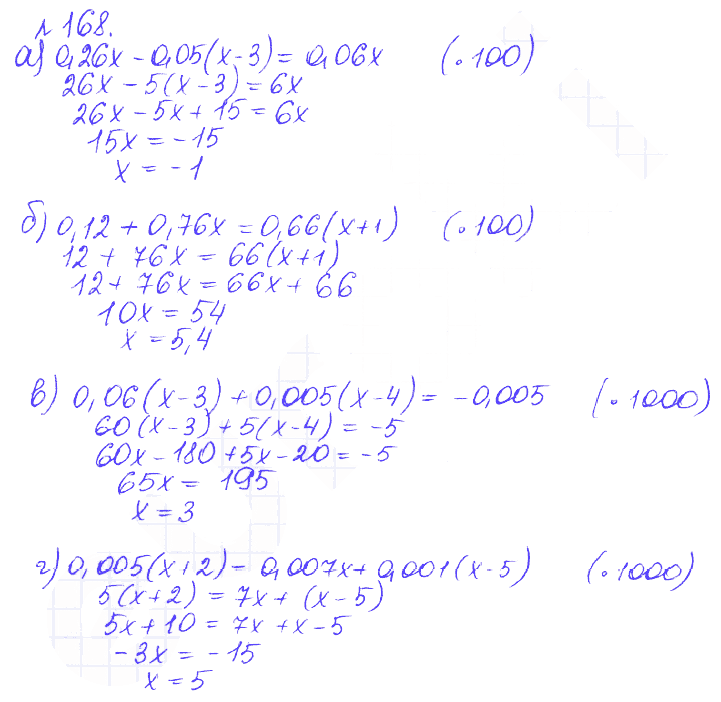 № 168.
а) 0,26x - 0,05(x-3) = 0,06x (·100)
26x - 5(x-3) = 6x
26x - 5x + 15 = 6x
15x = -15
x = -1
б) 0,12 + 0,76x = 0,66(x+1) (·100)
12 + 76x = 66(x+1)
12 + 76x = 66x + 66
10x = 54
x = 5,4
в) 0,06(x-3) + 0,005(x-4) = -0,005 (·1000)
60(x-3) + 5(x-4) = -5
60x - 180 + 5x - 20 = -5
65x = 195
x = 3
г) 0,005(x+2) = 0,007x + 0,001(x-5) (·1000)
5(x+2) = 7x + (x-5)
5x + 10 = 7x + x - 5
-3x = -15
x = 5